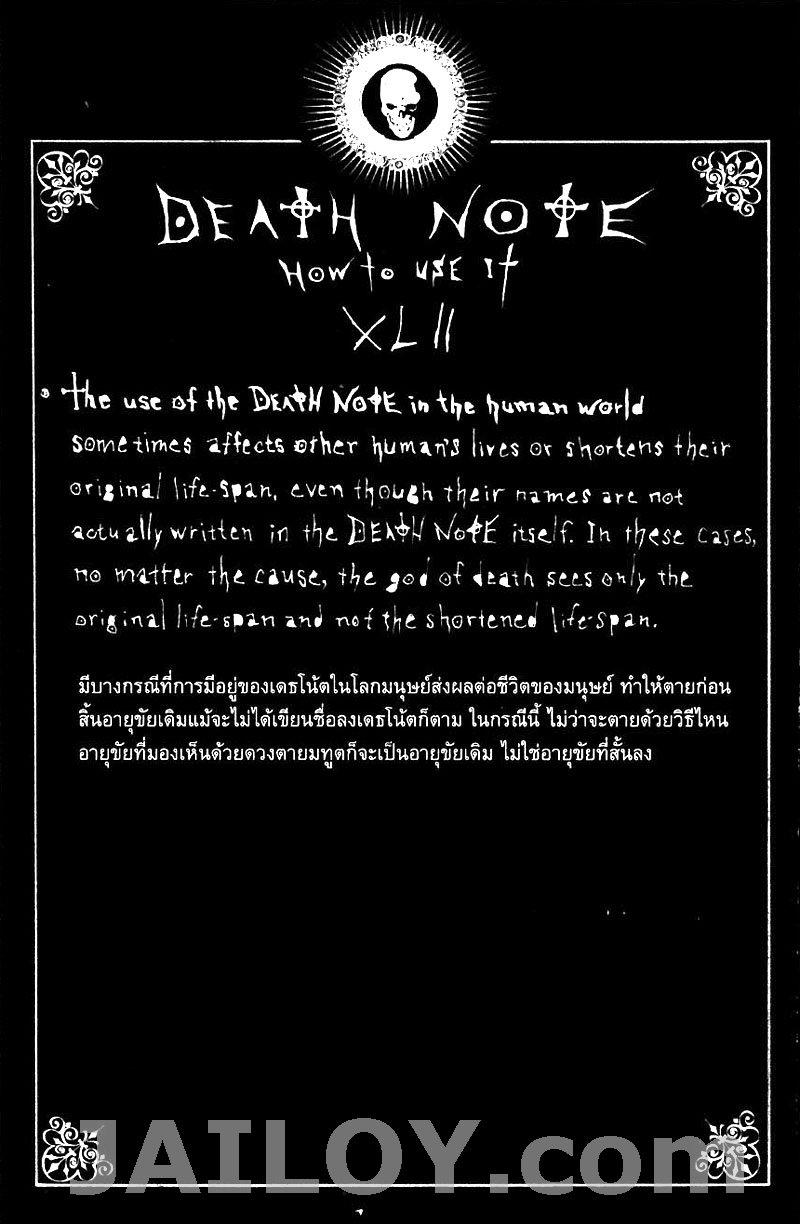 DEATH NOTE
HOW TO USE IT
XLII
The use of the DEATH NOTE in the human world
sometimes affects other human's lives or shortens their
original life-span, even though their names are not
actually written in the DEATH NOTE itself. In these cases,
no matter the cause, the god of death sees only the
original life-span and not the shortened life-span.
มีบางกรณีที่การมีอยู่ของเดธโน้ตในโลกมนุษย์ส่งผลต่อชีวิตของมนุษย์ ทำให้ตายก่อน
สิ้นอายุขัยเดิมแม้จะไม่ได้เขียนชื่อลงเดธโน้ตก็ตาม ในกรณีนี้ ไม่ว่าจะตายด้วยวิธีไหน
อายุขัยที่มองเห็นด้วยดวงตายมทูตก็จะเป็นอายุขัยเดิม ไม่ใช่อายุขัยที่สั้นลง
JAILOY.com